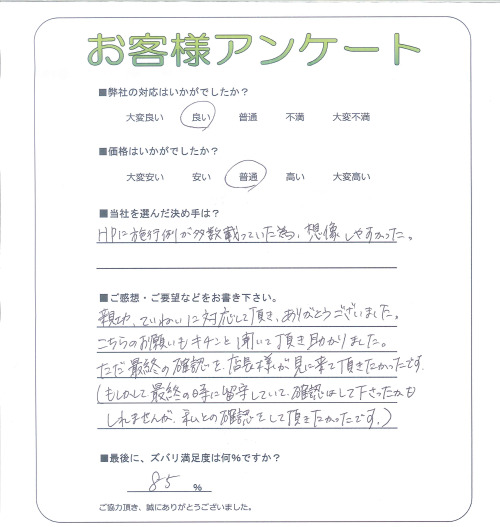 お客様アンケート
■弊社の対応はいかがでしたか？
大変良い 良い 普通 不満 大変不満
■価格はいかがでしたか？
大変安い 安い 普通 高い 大変高い
■当社を選んだ決め手は？
HPに施行例が多数載っていた為、想像しやすかった。
■ご感想・ご要望などをお書き下さい。
親切、ていねいに対応して頂き、ありがとうございました。
こちらのお願いもキチンと聞いて頂き助かりました。
ただ最終の確認を、店長様が見に来て頂きたかったです
(もしかして最終の時に留守していて、確認はして下さったかも
しれませんが、私との確認をして頂きたかったです。)
■最後に、ズバリ満足度は何%ですか？
85 %
ご協力頂き、誠にありがとうございました。